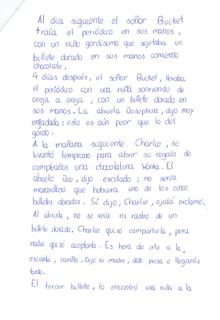 Al día siguiente el señor Bucket
traía el periódico en sus manos,
con un niño gordísimo que sujetaba un
billete dorado en sus manos comiendo
chocolate.
4 días después, el señor Bucket, llevaba
el periódico con una niña sonriendo de
oreja a oreja, con un billete dorado en
sus manos. La abuela Josephine, dijo muy
enfadada: esto es aún peor que lo del
gordo.
A la mañana siguiente Charlie, se
levantó temprano para abrir su regalo de
cumpleaños una chocolatina Wonka. El
abuelo Joe, dijo exaltado: no sería
maravilloso que hubiera uno de los cinco
billetes dorados. Sí dijo, Charlie, ojalá exclamó.
Al abrirla, no se veía ni rastro de un
billete dorado. Charlie quiso compartirla, pero
nadie quiso aceptarla. Es hora de irte a la
escuela, cariño. Dijo su madre, date prisa o llegarás
tarde.
El tercer billete, lo encontró una niña a la